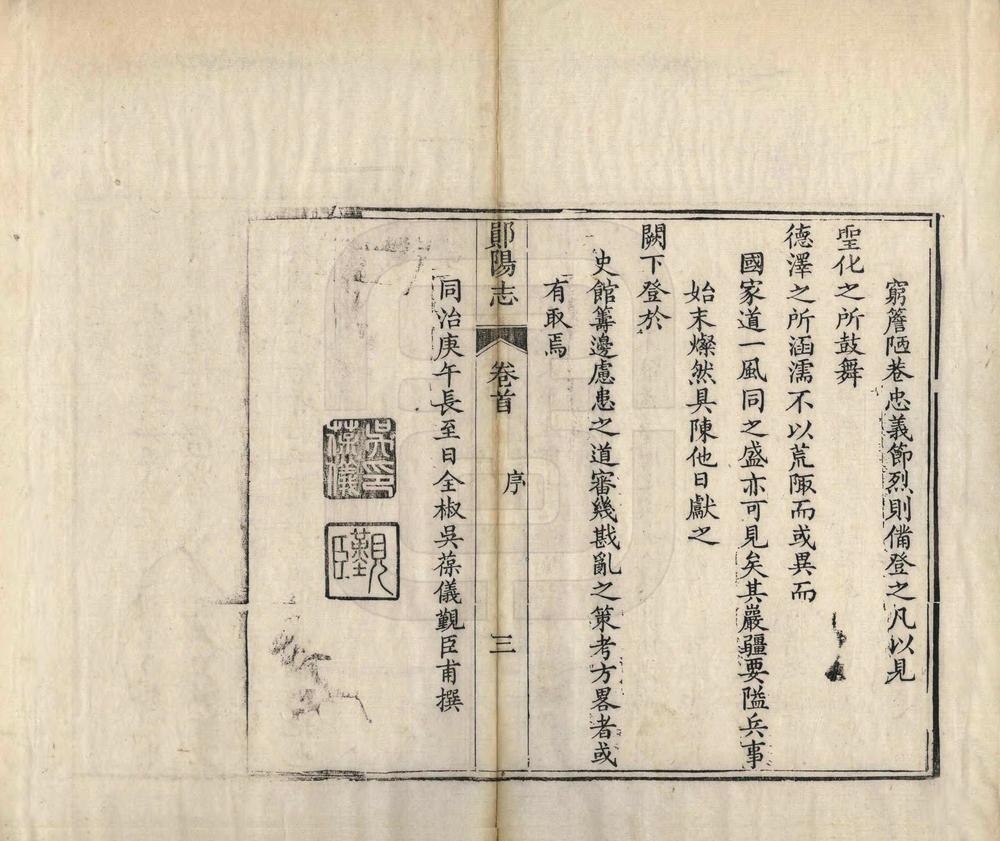 窮簷陋巷忠義節烈則備登之凡以見
聖化之所鼓舞
德澤之所涵濡不以荒陬而或異而
國家道一風同之盛亦可見矣其嚴疆要隘兵事
始末燦然具陳他日獻之
闕下登於
史館籌邊慮患之道審幾戡亂之策考方畧者或
有取焉
鄖陽志 卷首 序 三
同治庚午長至日全椒吳葆儀觀臣甫撰
吳印葆儀
觀臣